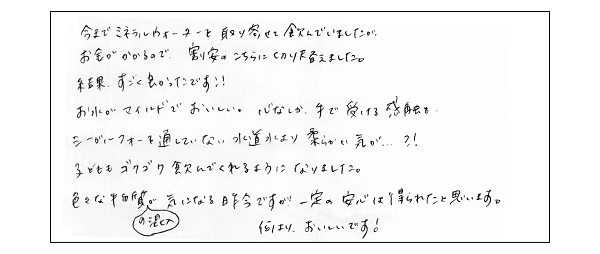 今までミネラルウォーターを取り寄せて飲んでいましたが、
お金がかかるので、割安のこちらに切り替えました。
結果、すごく良かったです!!
お水がマイルドでおいしい。心なしか、手で受ける感触も、
シーガルフォーを通していない水道水より柔らかい気が…?!
子どももゴクゴク飲んでくれるようになりました。
色々な物質の混入が気になる昨今ですが、一定の安心は得られたと思います。
何より、おいしいです!